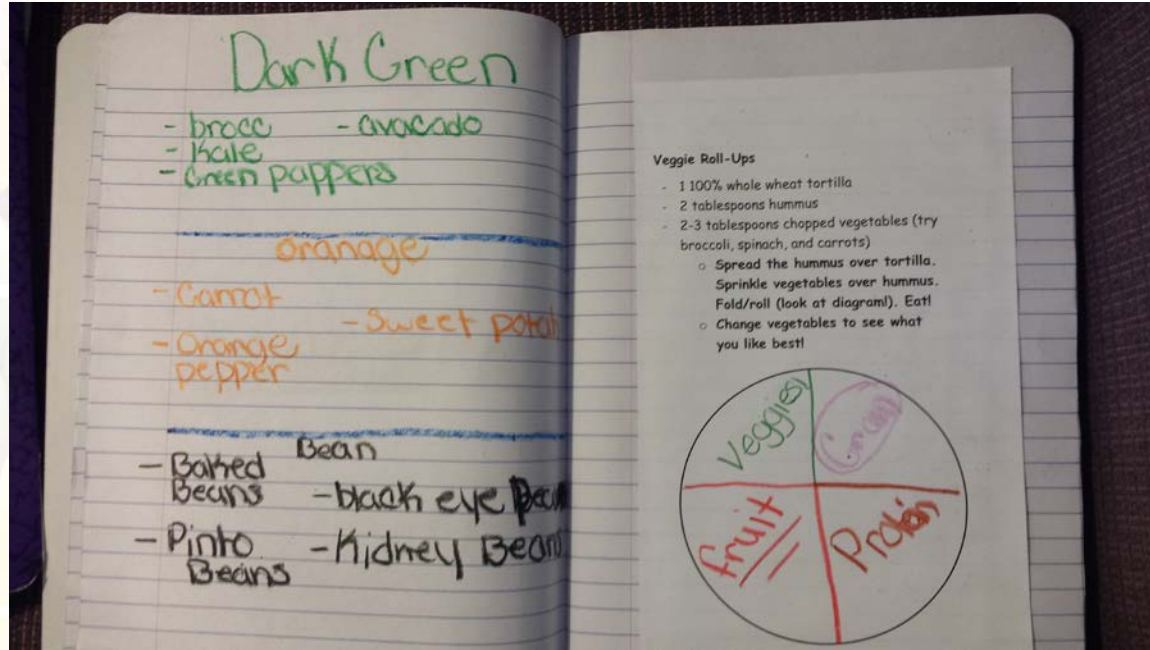 Dark Green
- brocc - avacado
- Kale
- Green pappers
oranage
- Carrot
- Sweet potato
- Orange
pepper
Bean
- Baked
Beans - black eye
- Pinto - Kidney Beans
Beans
Veggie Roll-Ups
- 1 100% whole wheat tortilla
- 2 tablespoons hummus
- 2-3 tablespoons chopped vegetables (try
broccoli, spinach, and carrots)
o Spread the hummus over tortilla.
Sprinkle vegetables over hummus.
Fold/roll (look at diagram!). Eat!
o Change vegetables to see what
you like best!
Veggies
fruit Protein